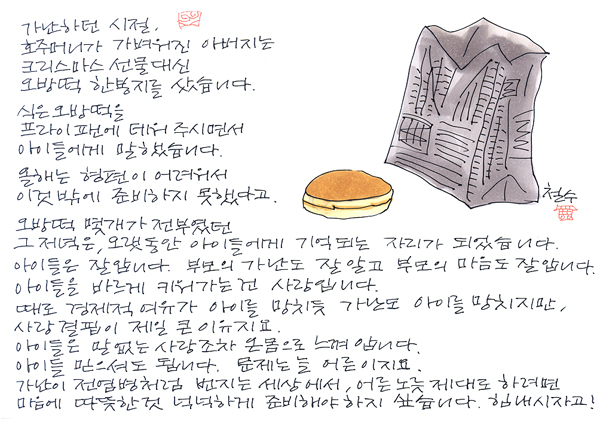 가난하던 시절,
호주머니가 가벼워진 아버지는
크리스마스 선물대신
오방떡 한봉지를 샀습니다.
식은 오방떡을
프라이팬에 데워 주시면서
아이들에게 말하했습니다.
올해는 형편이 어려워서
이것 밖에 준비하지 못했다고.
오방떡 몇개가 전부였던
그 저녁은, 오랫동안 아이들에게 기억되는 자리가 되었습니다.
아이들은 잘압니다. 부모의 가난도 잘 알고 부모의 마음도 잘압니다.
아이들을 바르게 키워가는건 사랑입니다.
때로 경제적 여유가 아이들 망치듯 가난도 아이들 망치지만,
사랑결핍이 제일 큰 이유지요.
아이들은 말없는 사랑조차 온몸으로 느껴 압니다.
아이들 믿으셔도 됩니다. 문제는 늘 어른이지요.
가난이 전염병처럼 번지는 세상에서, 어른 노릇 제대로 하려면
마음에 따뜻한것 넉넉하게 준비해야 하지 싶습니다. 힘내시자고!
철수